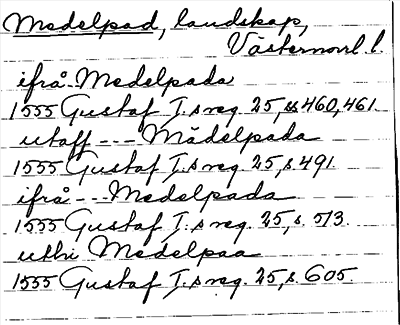 Medelpad, landskap,
Västernorrl. l.
ifrå Medelpada
1555 Gustaf I:s reg. 25, ss 460, 461.
utaff --- Mädelpada
1555 Gustaf I:s reg. 25, s. 491
ifrå --- Medelpada
1555 Gustaf I:s reg. 25, s. 513.
uthi Medelpaa
1555 Gustaf I:s reg. 25, s. 605.